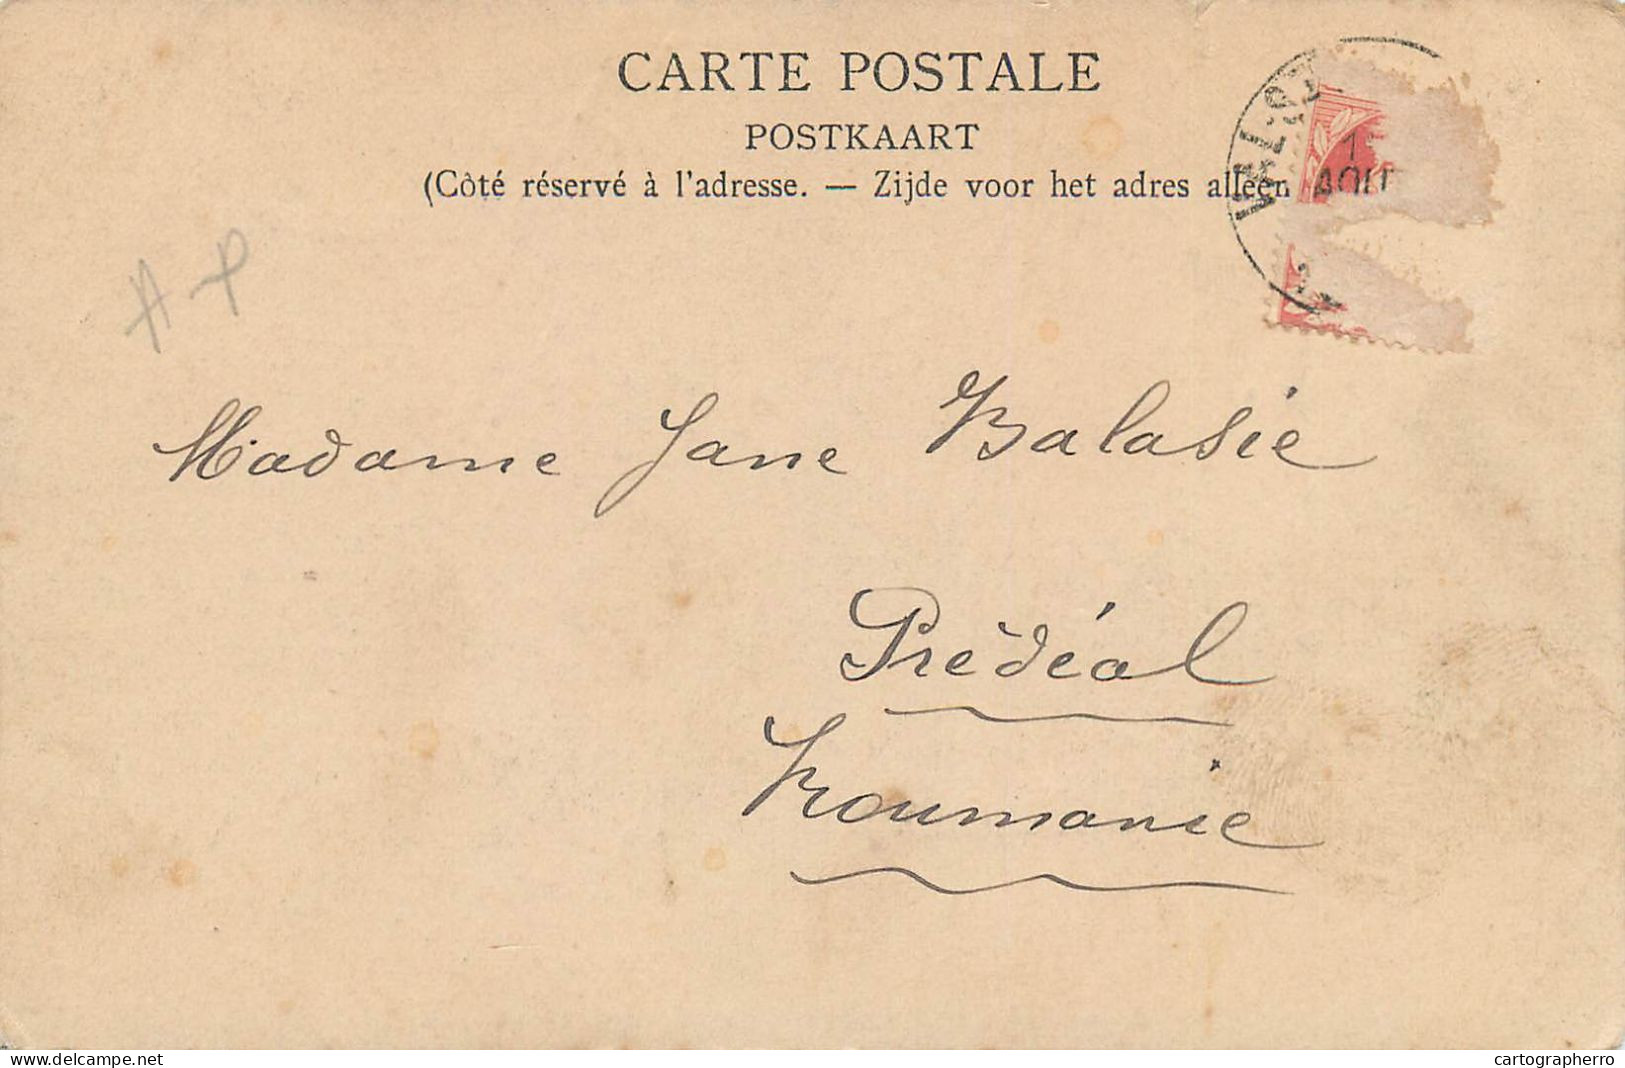 CARTE POSTALE
POSTKAART
(Côté réservé à l'adresse. — Zijde voor het adres alleen
AOUT
A P
Madame Jane Balasie
Prédéal
Roumanie
www.delcampe.net
cartographerro